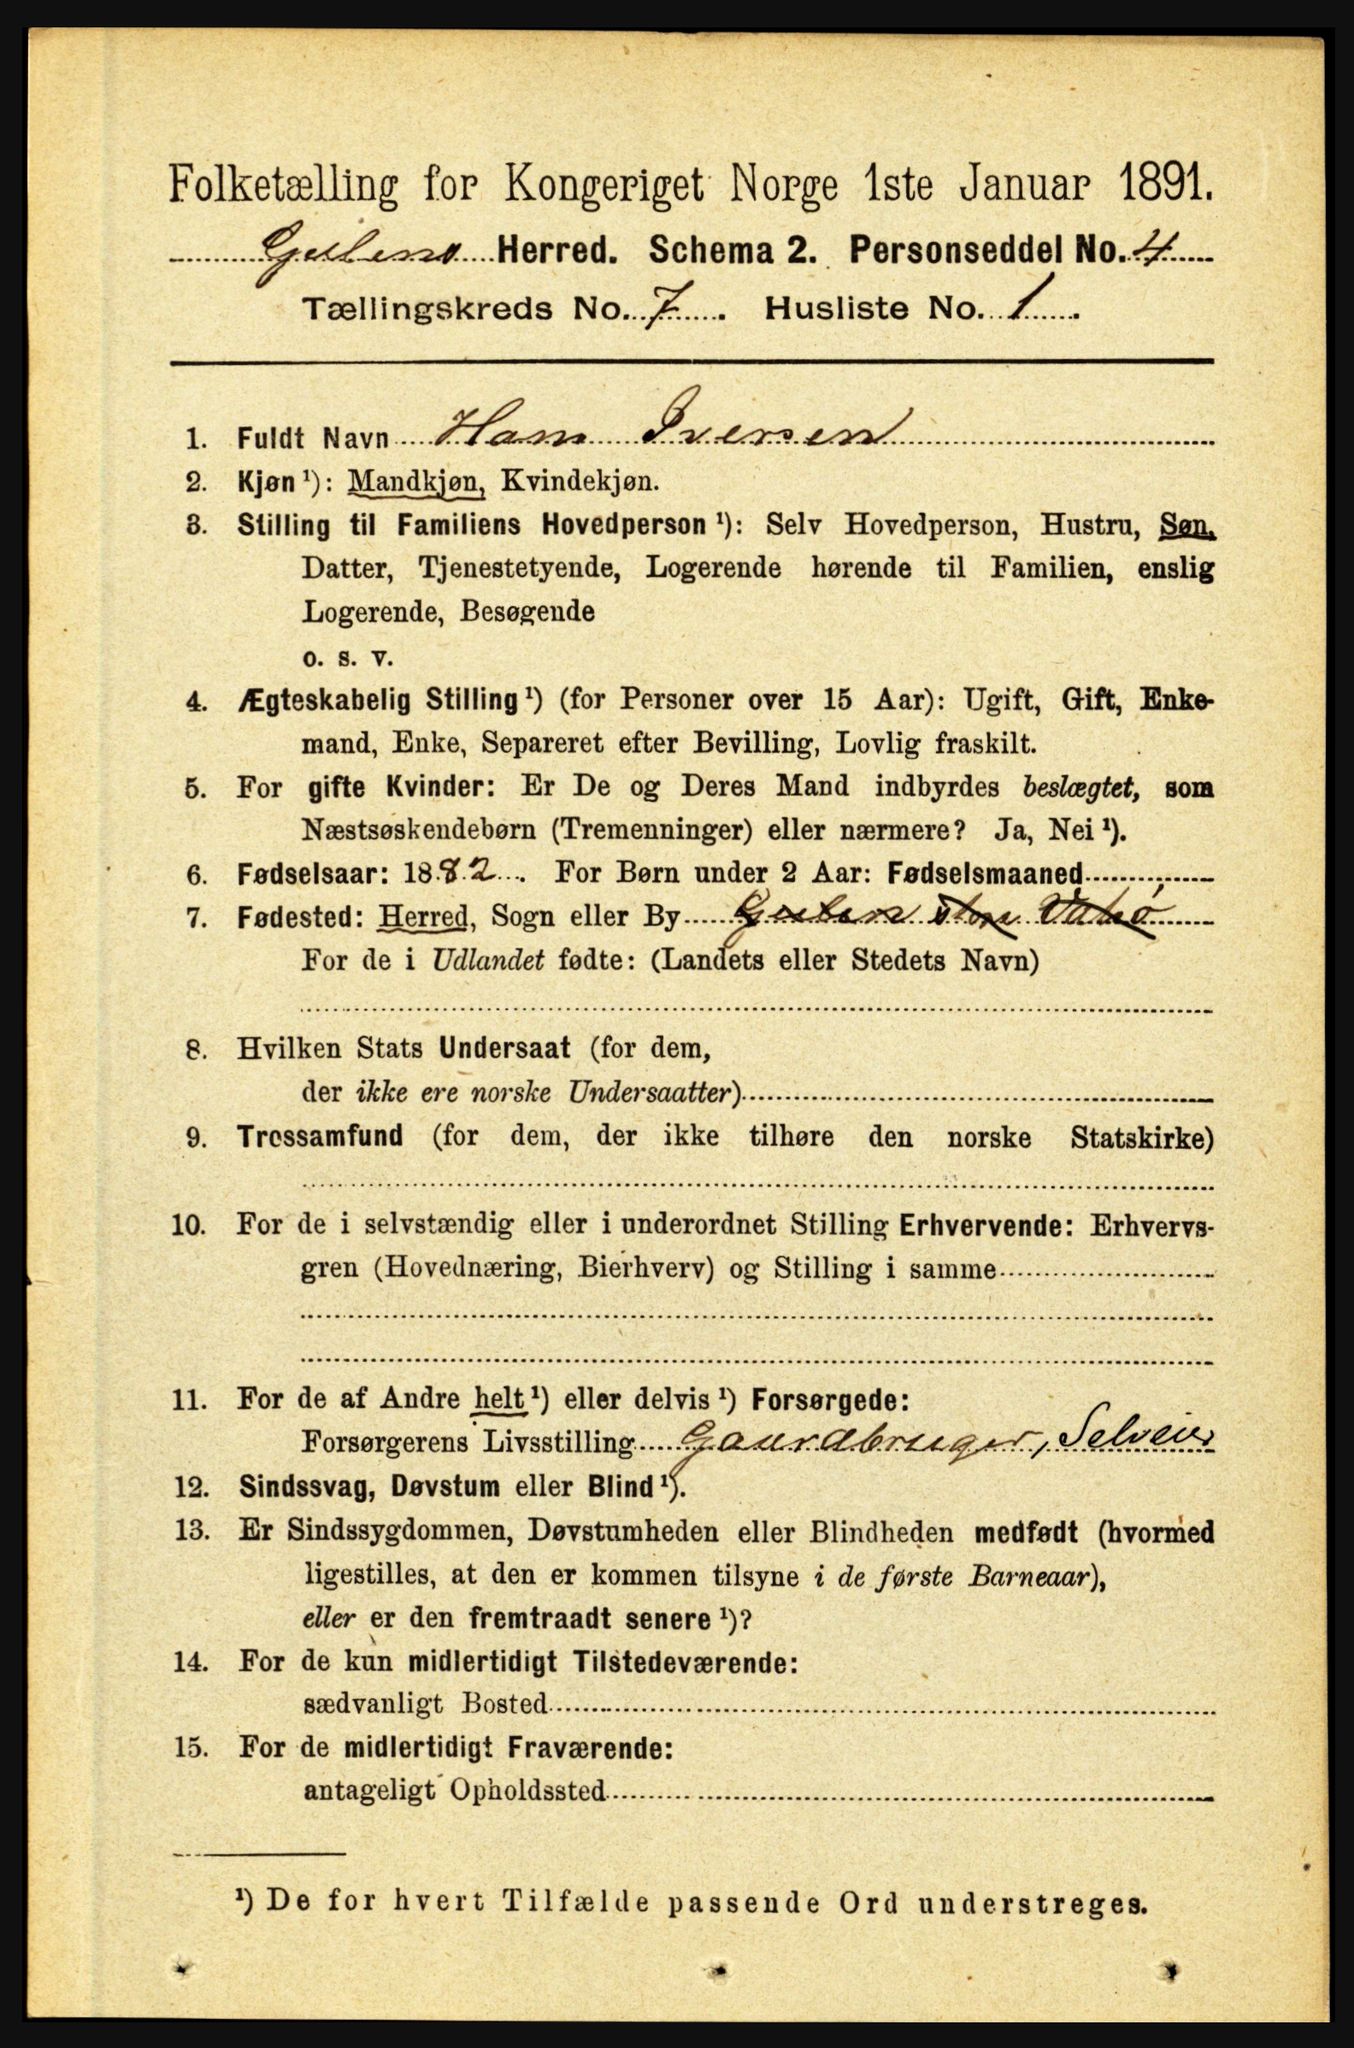 Folketælling for Kongeriget Norge 1ste Januar 1891.
Gulens Herred. Schema 2. Personseddel No. 4
Tællingskreds No. 7. Husliste No. 1.
1. Fuldt Navn Hans Iversen
2. Kjøn ¹): Mandkjøn, Kvindekjøn.
3. Stilling til Familiens Hovedperson ¹): Selv Hovedperson, Hustru, Søn,
Datter, Tjenestetyende, Logerende hørende til Familien, enslig
Logerende, Besøgende
o. s. v.
4. Ægteskabelig Stilling ¹) (for Personer over 15 Aar): Ugift, Gift, Enke-
mand, Enke, Separeret efter Bevilling, Lovlig fraskilt.
5. For gifte Kvinder: Er De og Deres Mand indbyrdes beslægtet, som
Næstsøskendebørn (Tremenninger) eller nærmere? Ja, Nei ¹).
6. Fødselsaar: 1882. For Børn under 2 Aar: Fødselsmaaned
7. Fødested: Herred, Sogn eller By Gulen
For de i Udlandet fødte: (Landets eller Stedets Navn)
8. Hvilken Stats Undersaat (for dem,
der ikke ere norske Undersaatter)
9. Trossamfund (for dem, der ikke tilhøre den norske Statskirke)
10. For de i selvstændig eller i underordnet Stilling Erhvervende: Erhvervs-
gren (Hovednæring, Bierhverv) og Stilling i samme
11. For de af Andre helt ¹) eller delvis ¹) Forsørgede:
Forsørgerens Livsstilling Gaardbruger, Selveier
12. Sindssvag, Døvstum eller Blind ¹).
13. Er Sindssygdommen, Døvstumheden eller Blindheden medfødt (hvormed
ligestilles, at den er kommen tilsyne i de første Barneaar),
eller er den fremtraadt senere ¹)?
14. For de kun midlertidigt Tilstedeværende:
sædvanligt Bosted
15. For de midlertidigt Fraværende:
antageligt Opholdssted
¹) De for hvert Tilfælde passende Ord understreges.